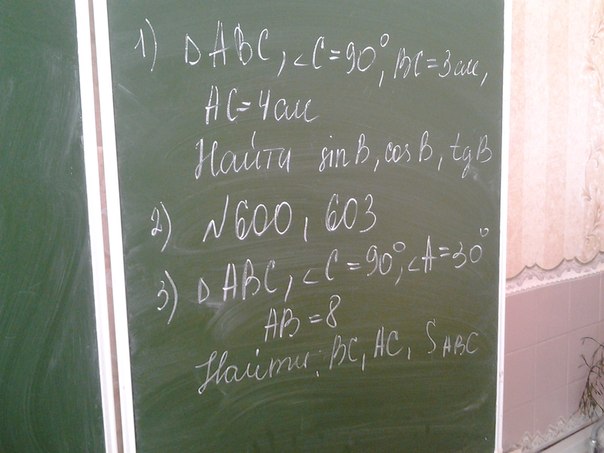 1) △ABC, ∠C=90°, BC=3см,
AC=4см
Найти sinB, cosB, tgB
2) №600, 603
3) △ABC, ∠C=90°, ∠A=30°
AB=8
Найти: BC, AC, SABC